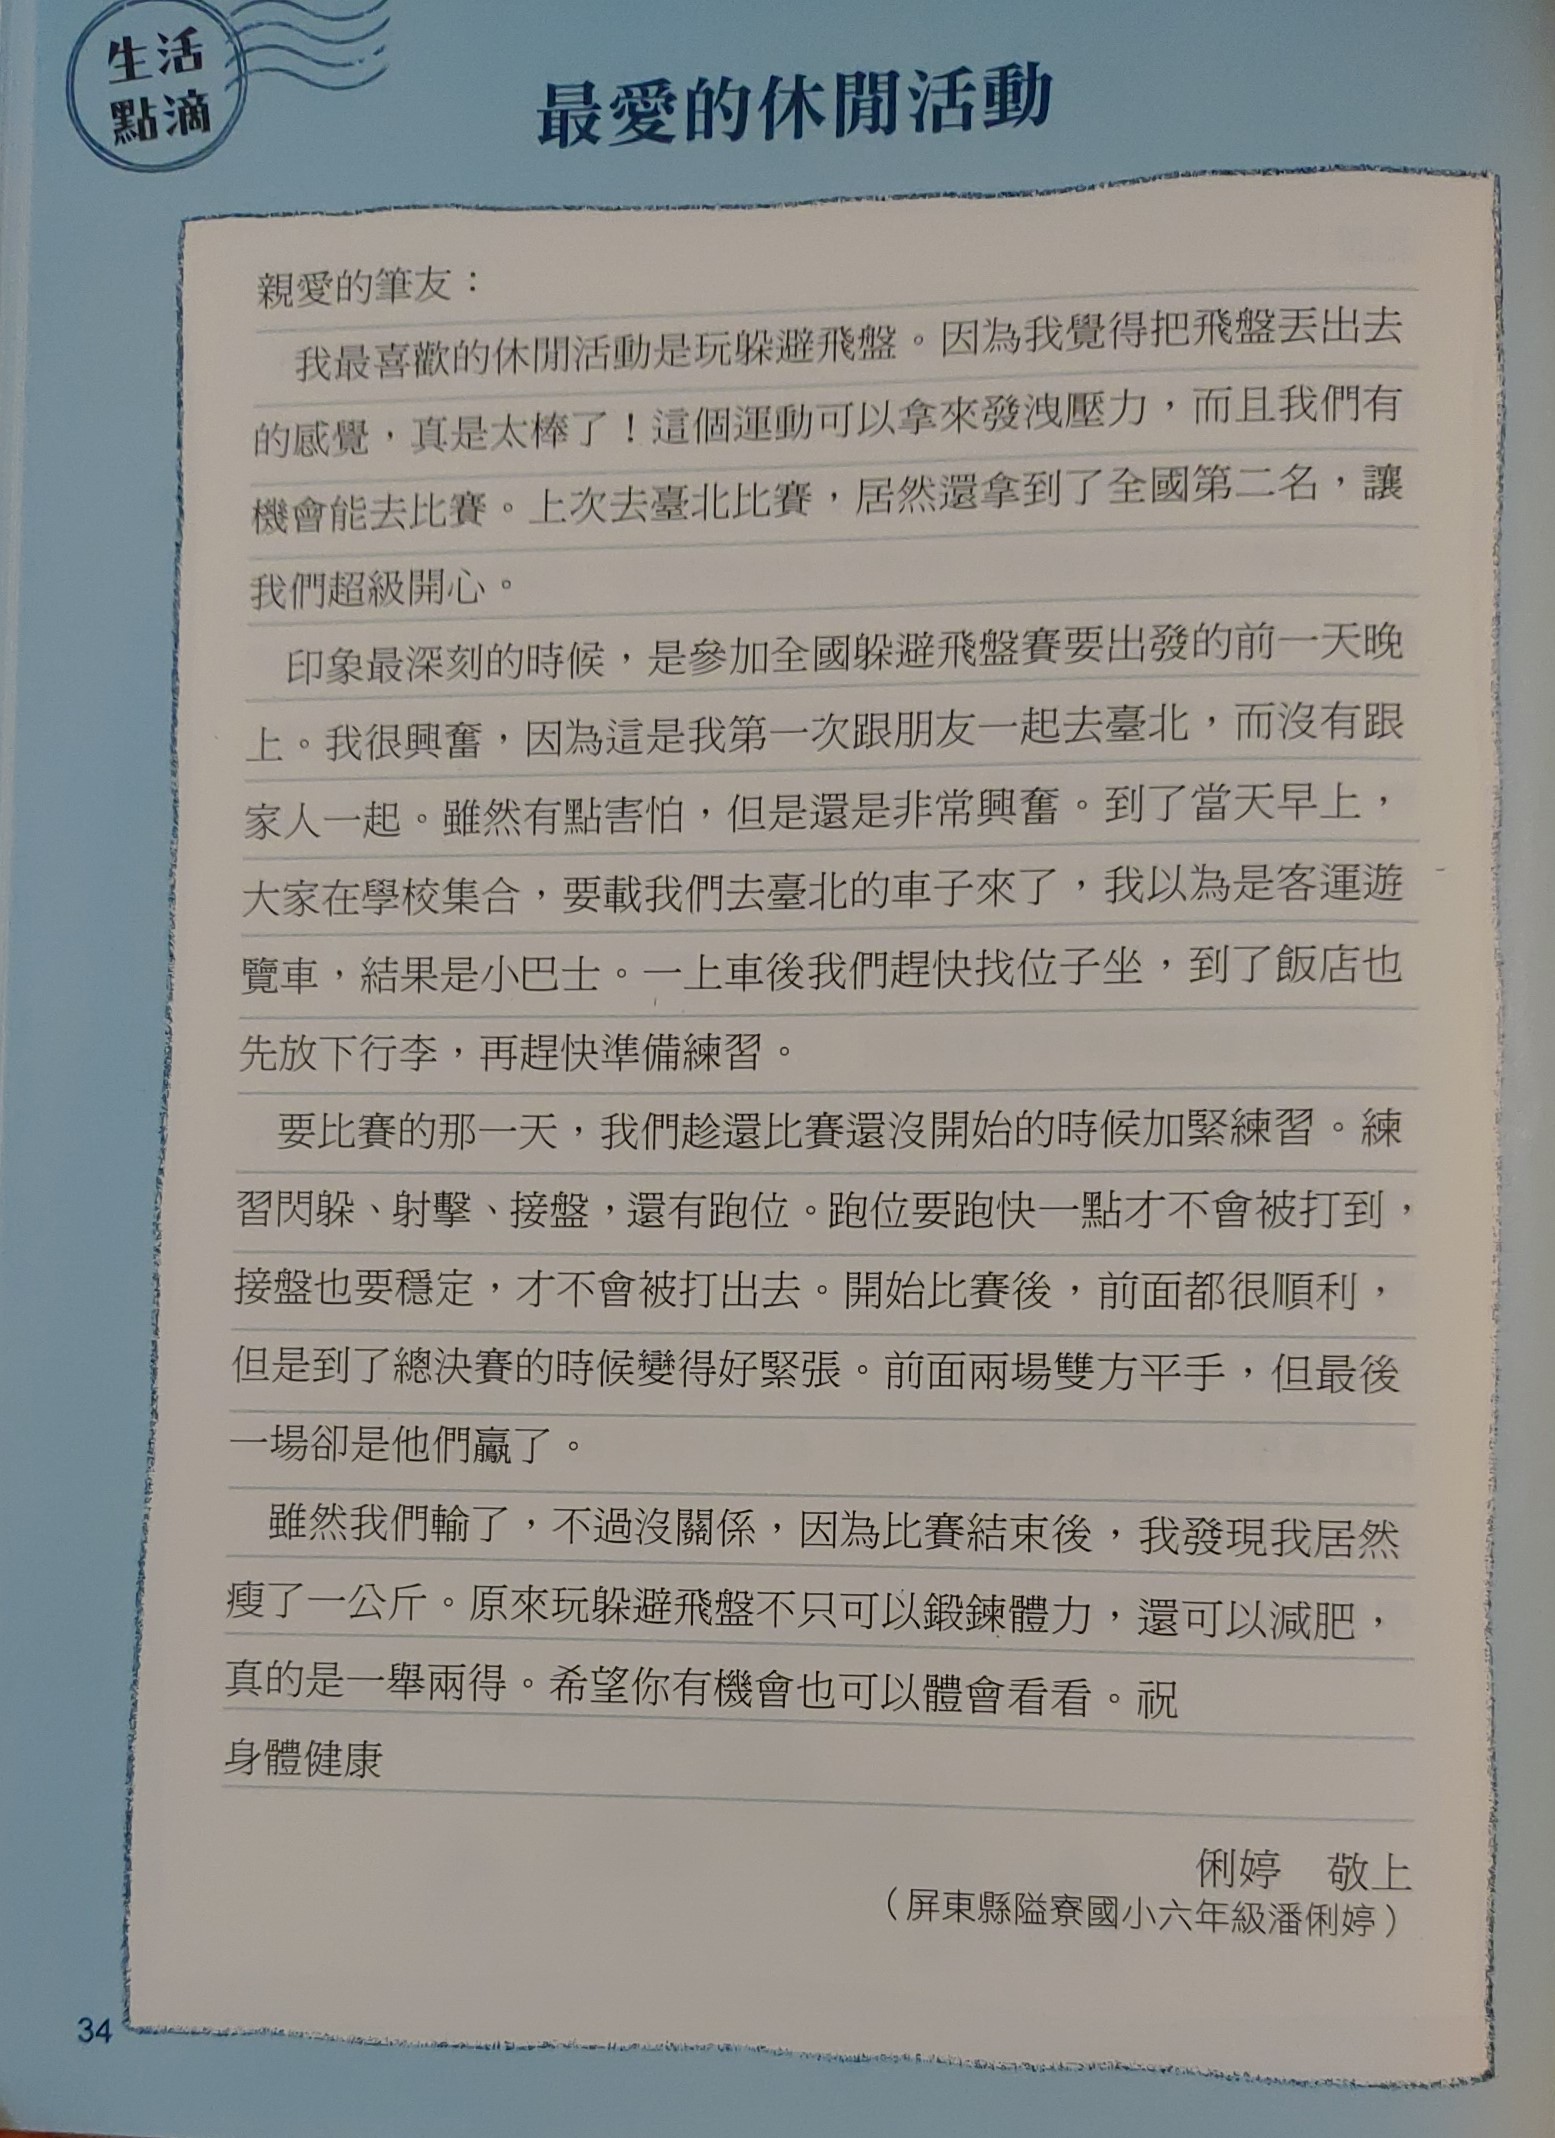 生活
點滴
最愛的休閒活動
親愛的筆友：
我最喜歡的休閒活動是玩躲避飛盤。因為我覺得把飛盤丟出去
的感覺，真是太棒了！這個運動可以拿來發洩壓力，而且我們有
機會能去比賽。上次去臺北比賽，居然還拿到了全國第二名，讓
我們超級開心。
印象最深刻的時候，是參加全國躲避飛盤賽要出發的前一天晚
上。我很興奮，因為這是我第一次跟朋友一起去臺北，而沒有跟
家人一起。雖然有點害怕，但是還是非常興奮。到了當天早上，
大家在學校集合，要載我們去臺北的車子來了，我以為是客運遊
覽車，結果是小巴士。一上車後我們趕快找位子坐，到了飯店也
先放下行李，再趕快準備練習。
要比賽的那一天，我們趁還比賽還沒開始的時候加緊練習。練
習閃躲、射擊、接盤，還有跑位。跑位要跑快一點才不會被打到，
接盤也要穩定，才不會被打出去。開始比賽後，前面都很順利，
但是到了總決賽的時候變得好緊張。前面兩場雙方平手，但最後
一場卻是他們贏了。
雖然我們輸了，不過沒關係，因為比賽結束後，我發現我居然
瘦了一公斤。原來玩躲避飛盤不只可以鍛鍊體力，還可以減肥，
真的是一舉兩得。希望你有機會也可以體會看看。祝
身體健康
俐婷　敬上
（屏東縣隘寮國小六年級潘俐婷）
34